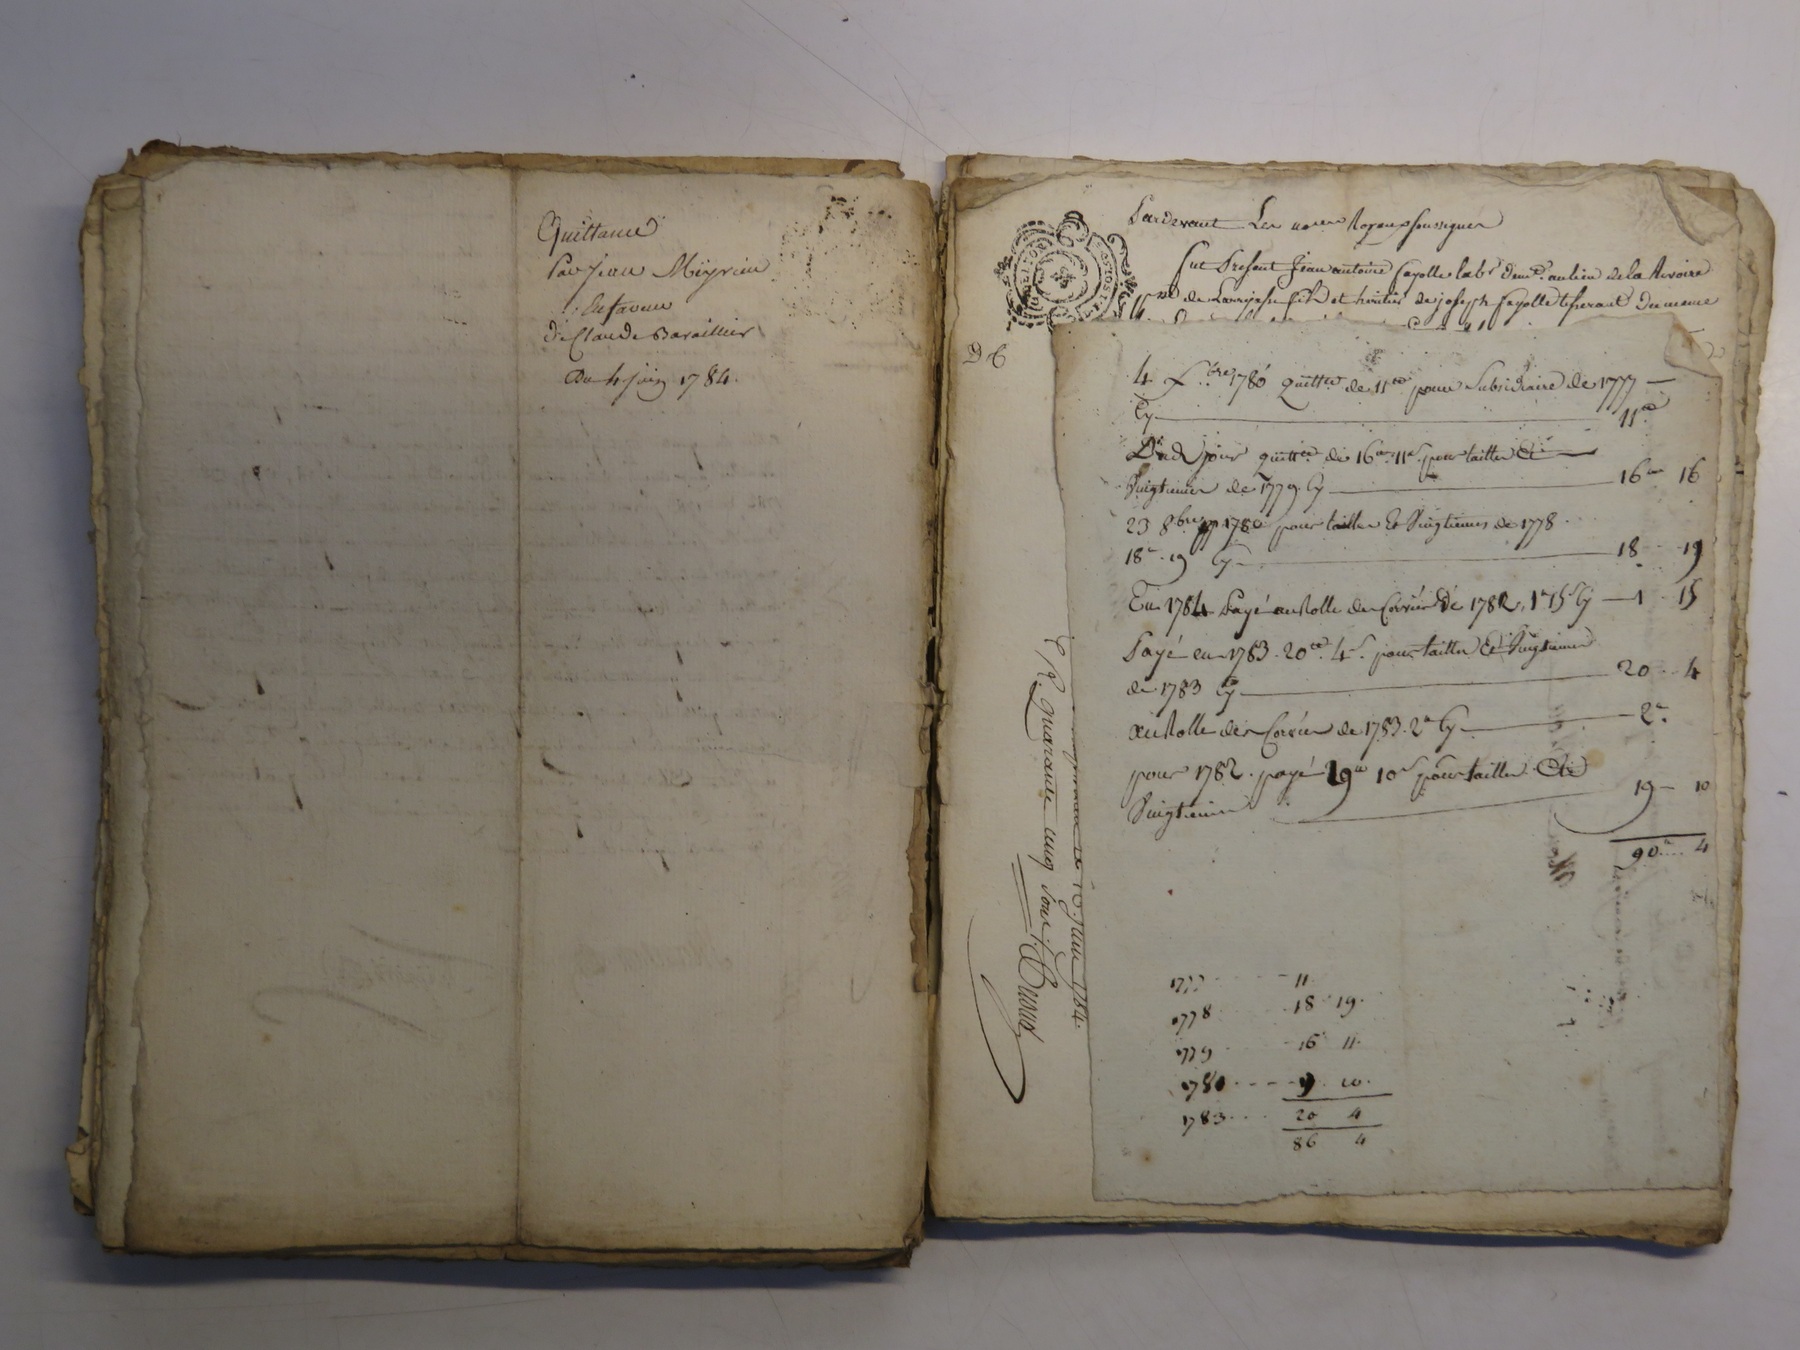 Quittance
Par Jean Meyrieu
En faveur
de Claude Baraillier
Du 4 juin 1784.
Pardevant Les nores Royaux soussignés
fut Présent Jean antoine fayolle labr demt au lieu de la Revoire
psse de Larrajasse fils et héritier de joseph fayolle tisserant du meme
D C
4 Xbre 1780 quittce de 11 pour subsidiaire de 1777
Cy 11
Dud jour quittce de 16 11s pour tailles Et
Vingtieme de 1779. Cy 16 16
23 8bre 1780 pour tailles Et Vingtiemes de 1778
18 19 Cy 18 19
En 1784 Payé au Rolle des Corvées de 1782, 1 15s Cy 1 15
Payé en 1783. 20 4s pour tailles Et Vingtieme
de 1783 Cy 20 4
au Rolle des Corvées de 1783. 2 Cy 2
pour 1782. payé 19 10s pour tailles Et
Vingtieme 19 10
90 4
1777 11
1778 18 19
1779 16 11
1780 10
1783 20 4
86 4
le 10 Juin 1784.
R. quarante cinq sous